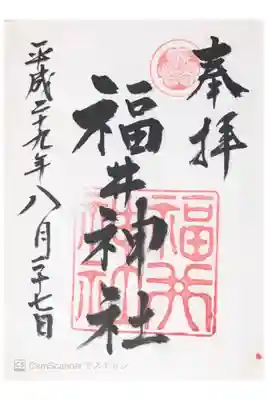 奉拝
福井神社
平成二十九年八月二十七日
福井
神社
CamScanner でスキャン